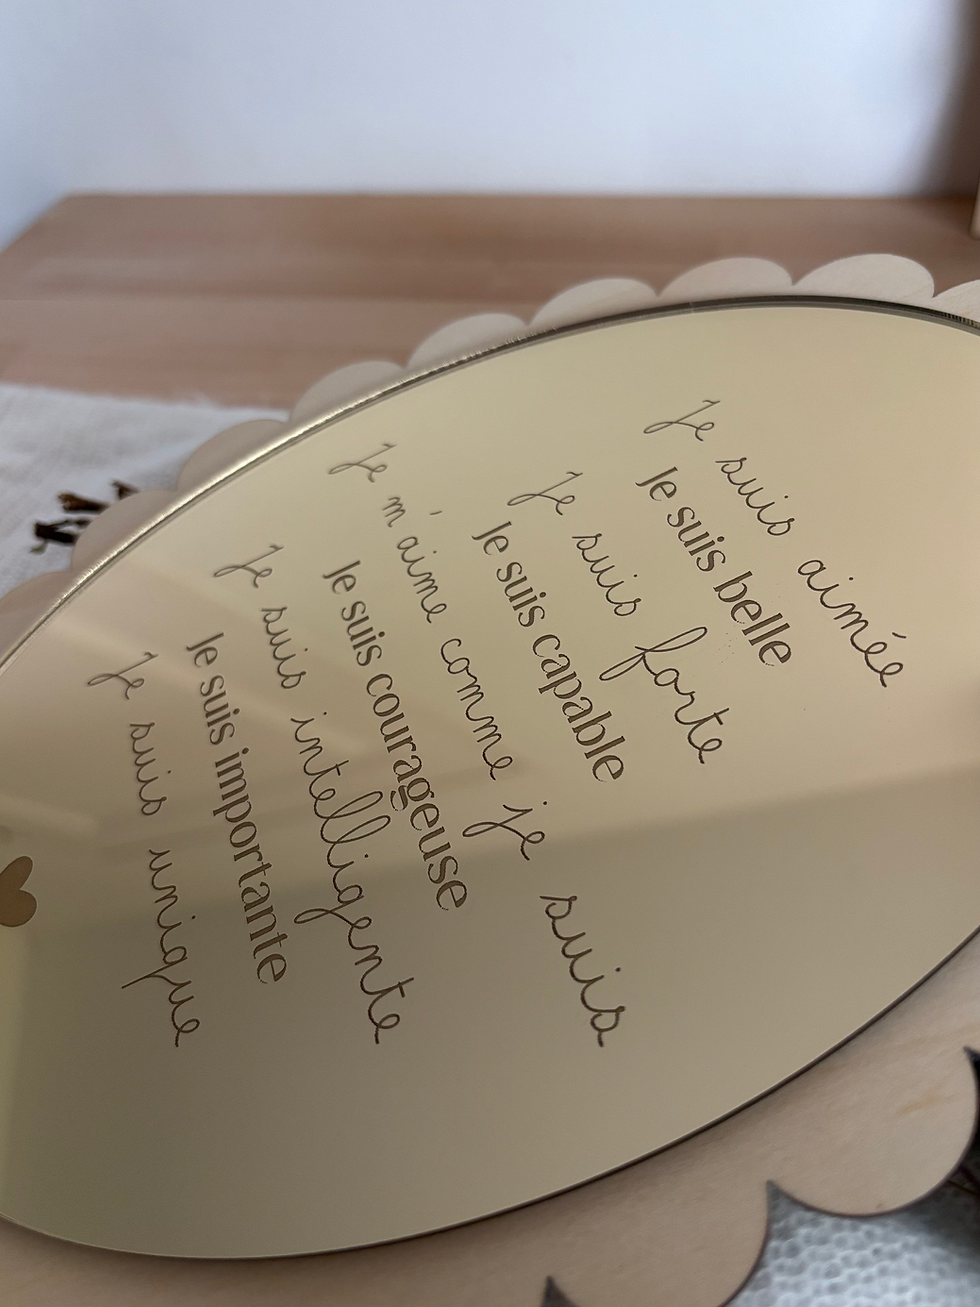 Je suis aimée
Je suis belle
Je suis forte
Je suis capable
Je m'aime comme je suis
Je suis courageuse
Je suis intelligente
Je suis importante
Je suis unique